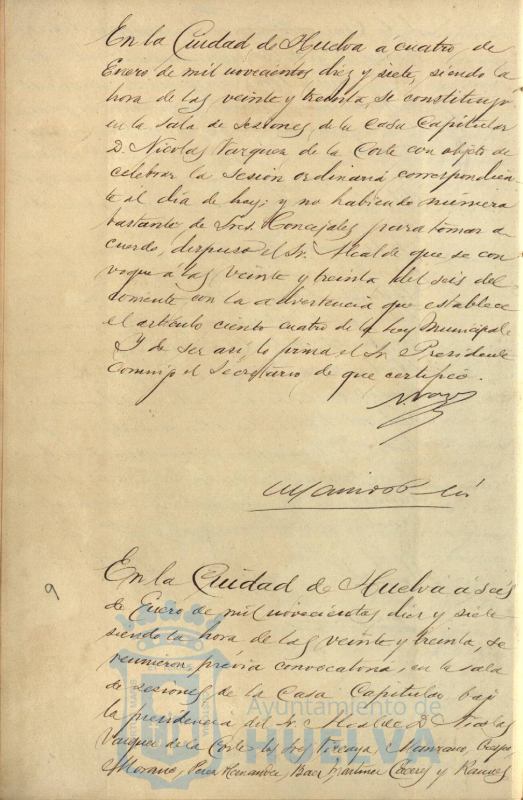 En la Ciudad de Huelva á cuatro de
Enero de mil novecientos diez y siete, siendo la
hora de las veinte y treinta, se constituyó
en la sala de sesiones de la Casa Capitular
D. Nicolas Vazquez de la Corte con objeto de
celebrar la sesion ordinaria correspondien-
te al dia de hoy; y no habiendo número
bastante de Sres. Concejales para tomar a-
cuerdo, dispuso el Sr. Alcalde que se con
voque a las veinte y treinta del seis del
corriente con la advertencia que establece
el artículo ciento cuatro de la Ley Municipal.
Y de ser así, lo firma el Sr. Presidente
conmigo el Secretario de que certifico.
9
En la Ciudad de Huelva á seis
de Enero de mil novecientos diez y siete
siendo la hora de las veinte y treinta, se
reunieron, prévia convocatoria, en la sala
de sesiones de la Casa Capitular bajo
la presidencia del Sr. Alcalde D. Nicolas
Vazquez de la Corte los Sres. Vizcaya, Manzano, Crespo,
Morano, Perez Hernandez, Baez, Martinez Caceres y Ramos
Ayuntamiento de
HUELVA